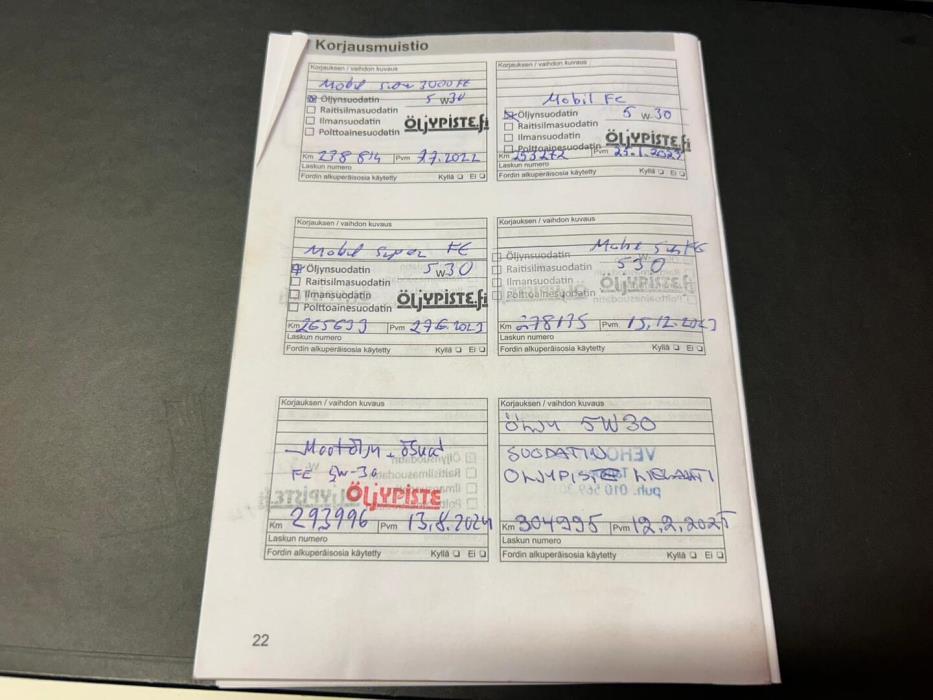 Korjausmuistio
Korjauksen / vaihdon kuvaus
Mobil Super 3000 FE
Öljynsuodatin 5 W 30
Raitisilmasuodatin
Ilmansuodatin
Polttoainesuodatin
ÖLJYPISTE.fi
Km 238 814 Pvm 7.7.2022
Laskun numero
Fordin alkuperäisosia käytetty Kyllä Ei
Korjauksen / vaihdon kuvaus
Mobil FE
Öljynsuodatin 5 W-30
Raitisilmasuodatin
Ilmansuodatin
Polttoainesuodatin
ÖLJYPISTE.fi
Km 253272 Pvm 25.1.2023
Laskun numero
Fordin alkuperäisosia käytetty Kyllä Ei
Korjauksen / vaihdon kuvaus
Mobil Super FE
Öljynsuodatin 5 W 30
Raitisilmasuodatin
Ilmansuodatin
Polttoainesuodatin
ÖLJYPISTE.fi
Km 265633 Pvm 27.6.2023
Laskun numero
Fordin alkuperäisosia käytetty Kyllä Ei
Korjauksen / vaihdon kuvaus
Öljynsuodatin
Raitisilmasuodatin 530
Ilmansuodatin
Polttoainesuodatin
Km 278175 Pvm 15.12.2023
Laskun numero
Fordin alkuperäisosia käytetty Kyllä Ei
Korjauksen / vaihdon kuvaus
FE 5W-30
ÖLJYPISTE
Km 293996 Pvm 13.8.2024
Laskun numero
Fordin alkuperäisosia käytetty Kyllä Ei
Korjauksen / vaihdon kuvaus
ÖLJY 5W30
SUODATIN
ÖLJYPISTE
Km 304995 Pvm 12.2.2025
Laskun numero
Fordin alkuperäisosia käytetty Kyllä Ei
22